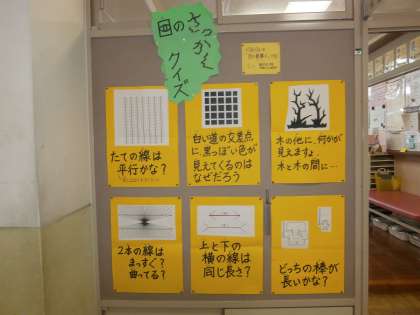 さっかく
目の
クイズ
たての線は
平行かな？
白い道の交差点
に、黒っぽい色が
見えてくるのは
なぜだろう
木の他に、何かが
見えますよ。
木と木の間に…
2本の線は
まっすぐ？
曲ってる？
上と下の
横の線は
同じ長さ？
どっちの棒が
長いかな？